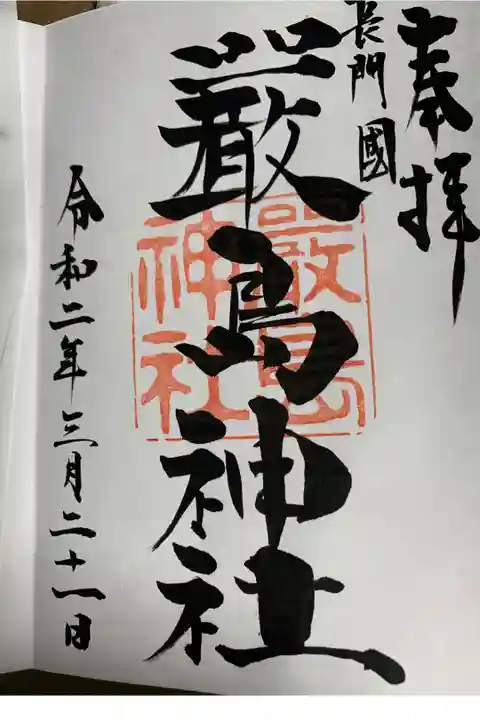 奉拝
長門國
嚴島神社
嚴島
神社
令和二年三月二十一日